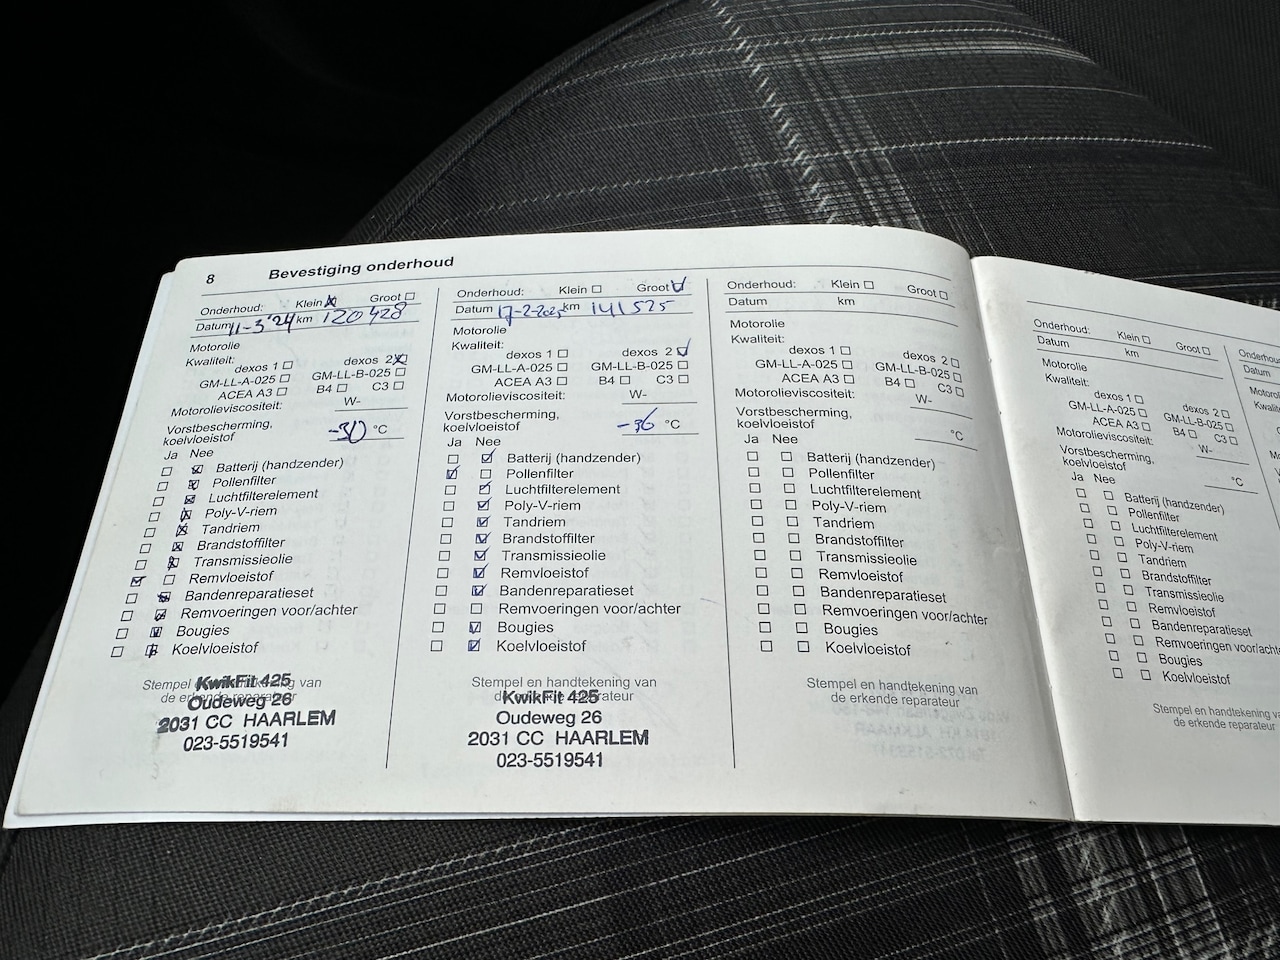 8 Bevestiging onderhoud
Onderhoud: Klein Groot
Datum 11-3'24 km 120428
Motorolie
Kwaliteit:
dexos 1 dexos 2
GM-LL-A-025 GM-LL-B-025
ACEA A3 B4 C3
Motorolieviscositeit: W-
Vorstbescherming,
koelvloeistof -30 °C
Ja Nee
Batterij (handzender)
Pollenfilter
Luchtfilterelement
Poly-V-riem
Tandriem
Brandstoffilter
Transmissieolie
Remvloeistof
Bandenreparatieset
Remvoeringen voor/achter
Bougies
Koelvloeistof
Stempel en handtekening van
de erkende reparateur
KwikFit 425
Oudeweg 26
2031 CC HAARLEM
023-5519541
Onderhoud: Klein Groot
Datum 17-2-2025 km 141525
Motorolie
Kwaliteit:
dexos 1 dexos 2
GM-LL-A-025 GM-LL-B-025
ACEA A3 B4 C3
Motorolieviscositeit: W-
Vorstbescherming,
koelvloeistof -36 °C
Ja Nee
Batterij (handzender)
Pollenfilter
Luchtfilterelement
Poly-V-riem
Tandriem
Brandstoffilter
Transmissieolie
Remvloeistof
Bandenreparatieset
Remvoeringen voor/achter
Bougies
Koelvloeistof
Stempel en handtekening van
de erkende reparateur
KwikFit 425
Oudeweg 26
2031 CC HAARLEM
023-5519541
Onderhoud: Klein Groot
Datum km
Motorolie
Kwaliteit:
dexos 1 dexos 2
GM-LL-A-025 GM-LL-B-025
ACEA A3 B4 C3
Motorolieviscositeit: W-
Vorstbescherming,
koelvloeistof °C
Ja Nee
Batterij (handzender)
Pollenfilter
Luchtfilterelement
Poly-V-riem
Tandriem
Brandstoffilter
Transmissieolie
Remvloeistof
Bandenreparatieset
Remvoeringen voor/achter
Bougies
Koelvloeistof
Stempel en handtekening van
de erkende reparateur
Onderhoud: Klein Groot
Datum km
Motorolie
Kwaliteit:
dexos 1 dexos 2
GM-LL-A-025 GM-LL-B-025
ACEA A3 B4 C3
Motorolieviscositeit: W-
Vorstbescherming,
koelvloeistof °C
Ja Nee
Batterij (handzender)
Pollenfilter
Luchtfilterelement
Poly-V-riem
Tandriem
Brandstoffilter
Transmissieolie
Remvloeistof
Bandenreparatieset
Remvoeringen voor/achte
Bougies
Koelvloeistof
Stempel en handtekening va
de erkende reparateur
Onderhou
Datum
Motorolie